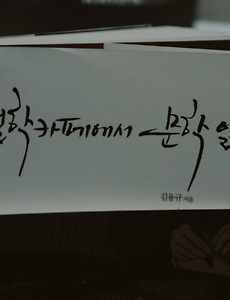 철학 카페에서 문학
김용규 지음